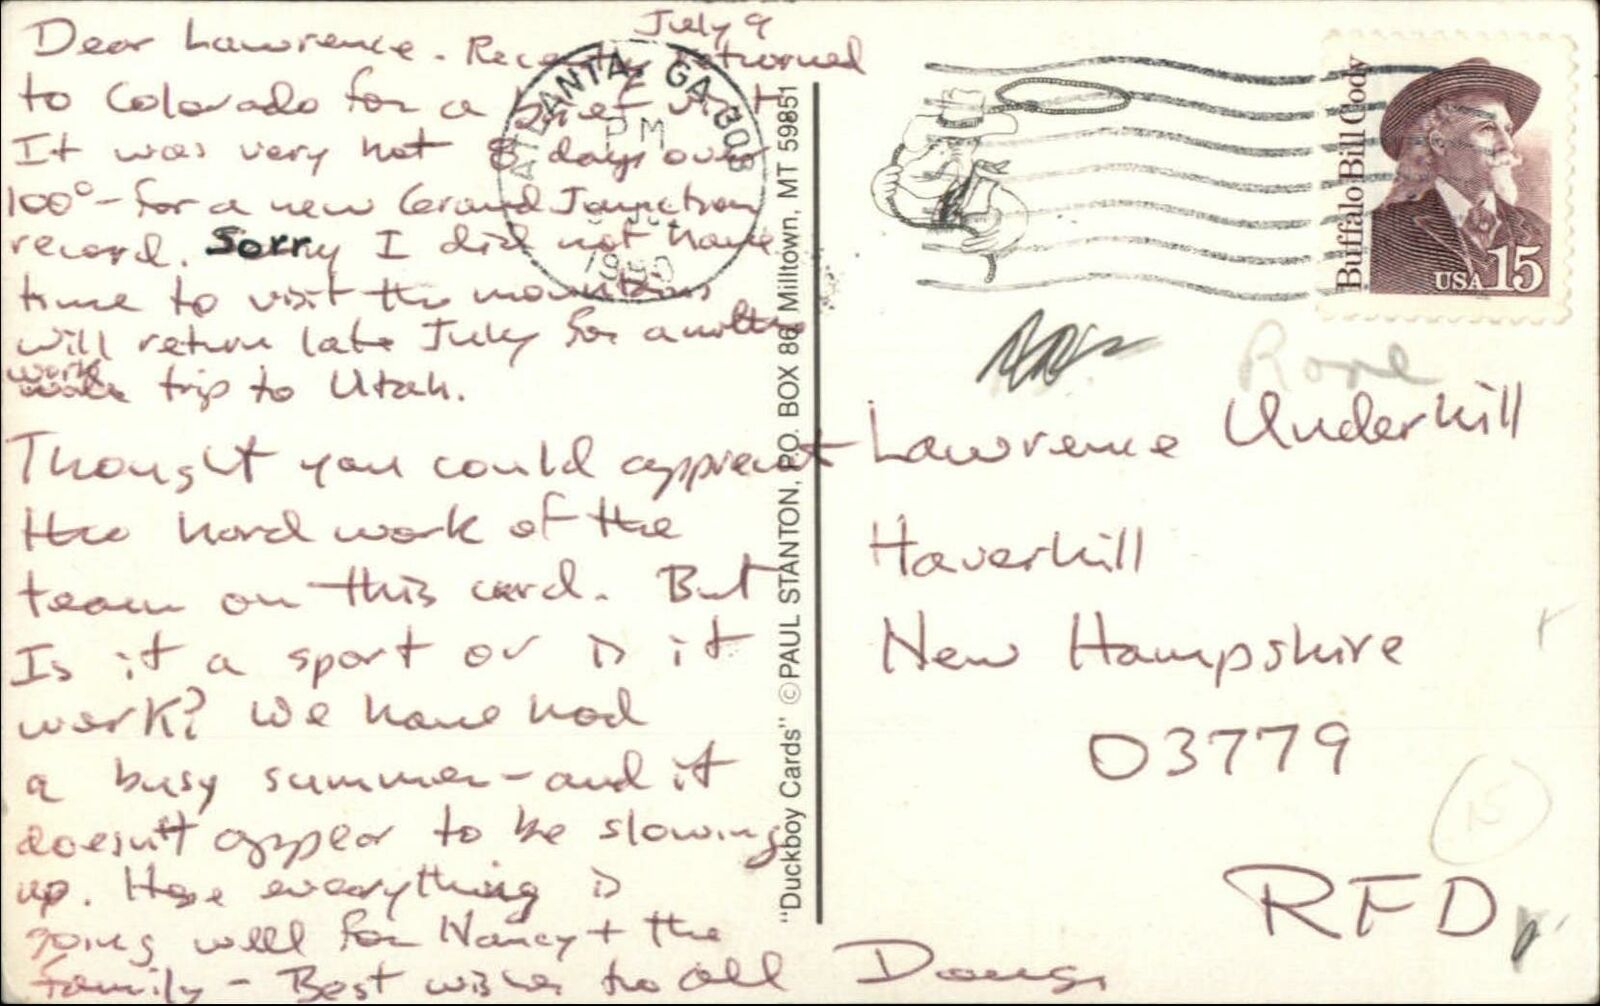 July 9
Dear Lawrence. Recently returned
to Colorado for a brief visit
It was very hot 8 days over
100° - for a new Grand Junction
record. Sorry I did not have
time to visit the mountains
will return late July for another
work
trip to Utah.
Thought you could appreciat
the hard work of the
team on this card. But
Is it a sport or is it
work? We have had
a busy summer - and it
doesn't appear to be slowing
up. Hope everything is
going well for Nancy + the
family - Best wishes to all Doug
ATLANTA, GA 303
PM
1990
"Duckboy Cards" ©PAUL STANTON, P.O. BOX 86, Milltown, MT 59851
Buffalo Bill Cody
USA 15
Lawrence Underhill
Haverhill
New Hampshire
03779
RFD
15